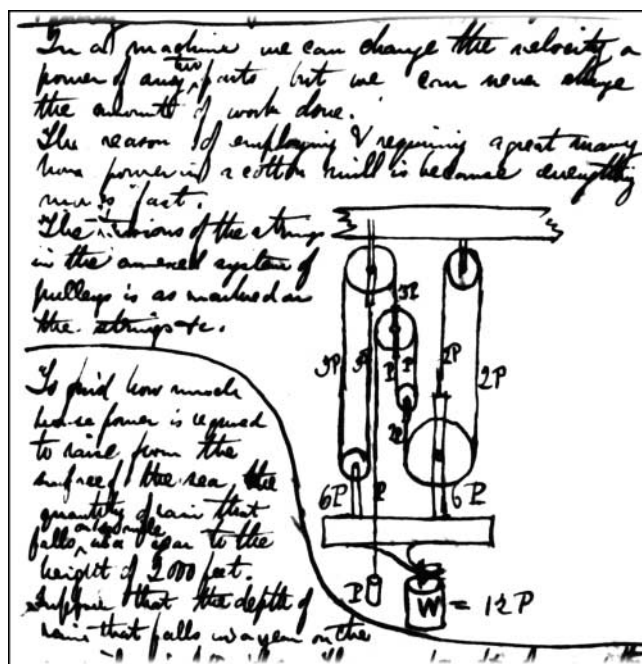 In a machine we can change the velocity or
power of any two parts but we can never change
the amount of work done.
The reason of employing & requiring a great many
horse power in a cotton mill is because everything
moves fast.
The tensions of the strings
in the annexed system of
pulleys is as marked on
the strings &c.
To find how much
horse power is required
to raise from the
surface of the sea the
quantity of rain that
falls on in a year to the
height of 2000 feet.
Suppose that the depth of
rain that falls in a year on the
3P
3P
3P
2P
2P
P
P
2P
6P
P
6P
P
W = 12P